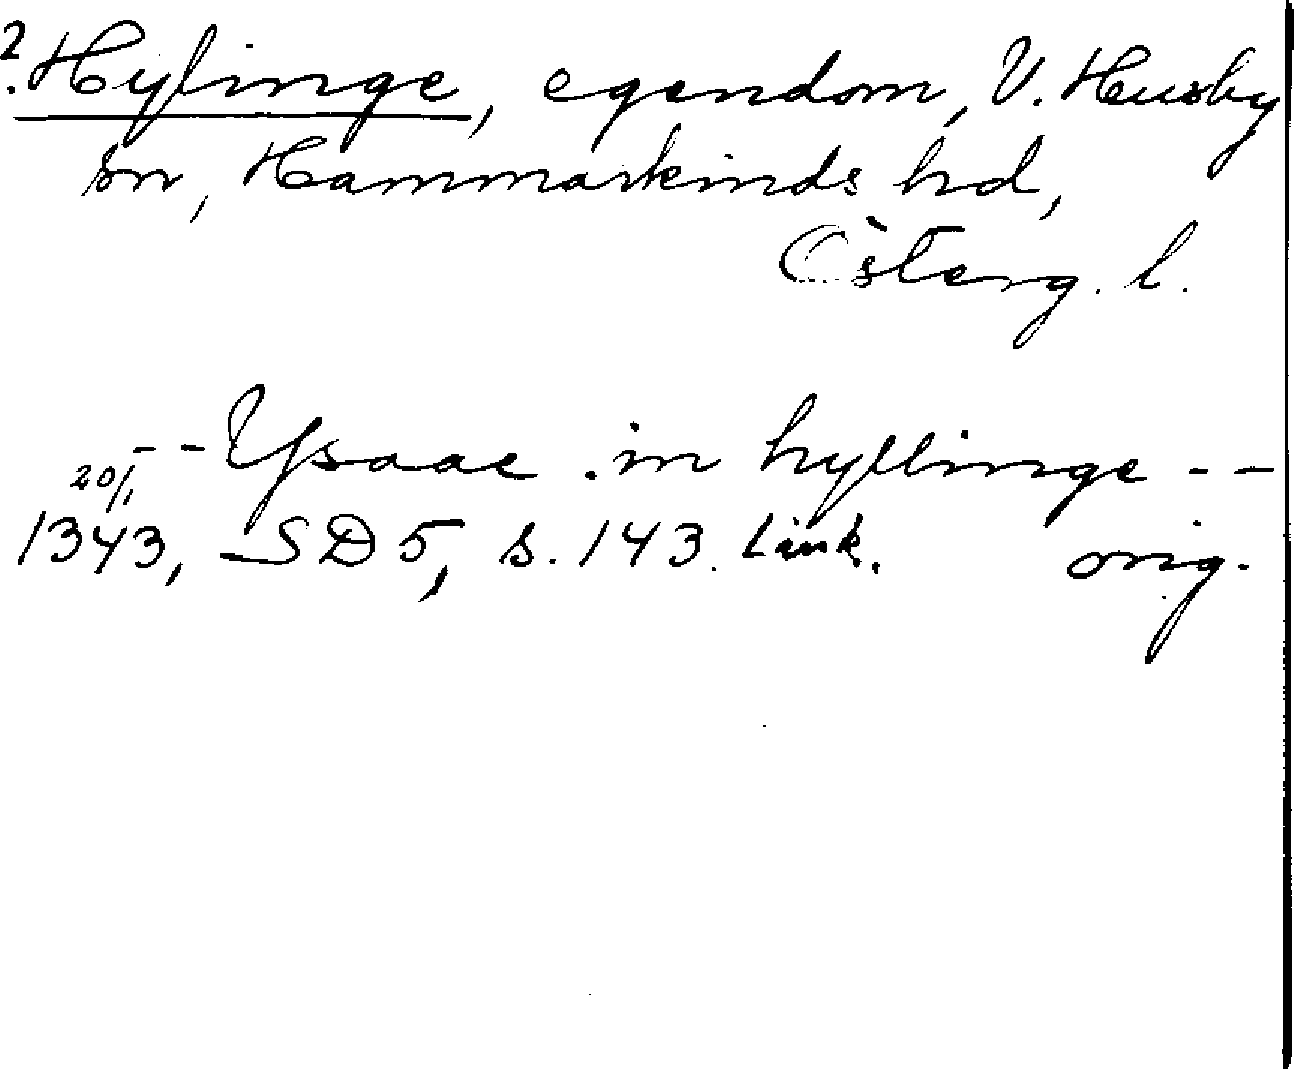 ?. Hylinge, egendom, V. Husby
sn, Hammarkinds hd,
Österg. l.
- - Ysaac in hyllinge - -
20/1
1343, SD 5, s. 143. Link. orig.